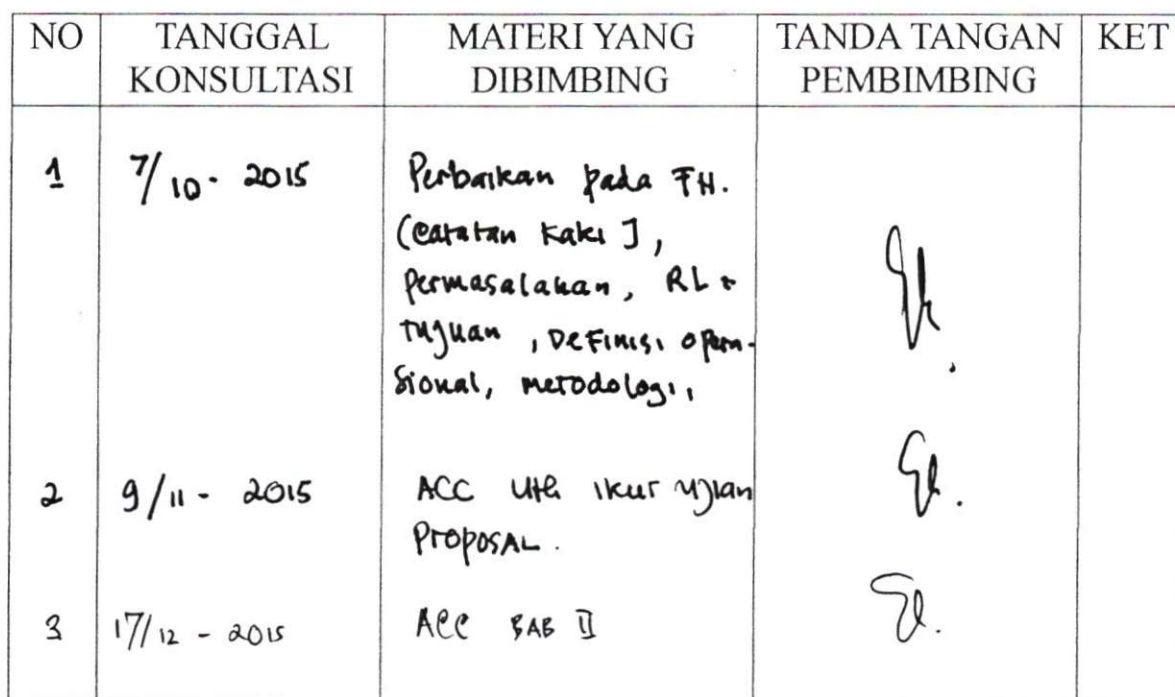 NO TANGGAL KONSULTASI MATERI YANG DIBIMBING TANDA TANGAN PEMBIMBING KET
1 7/10 - 2015 Perbaikan pada FH.
(Catatan Kaki],
Permasalahan, RL +
tujuan, Definisi opera-
sional, metodologi,
2 9/11 - 2015 ACC Utk ikut ujian
Proposal.
3 17/12 - 2015 ACC BAB II